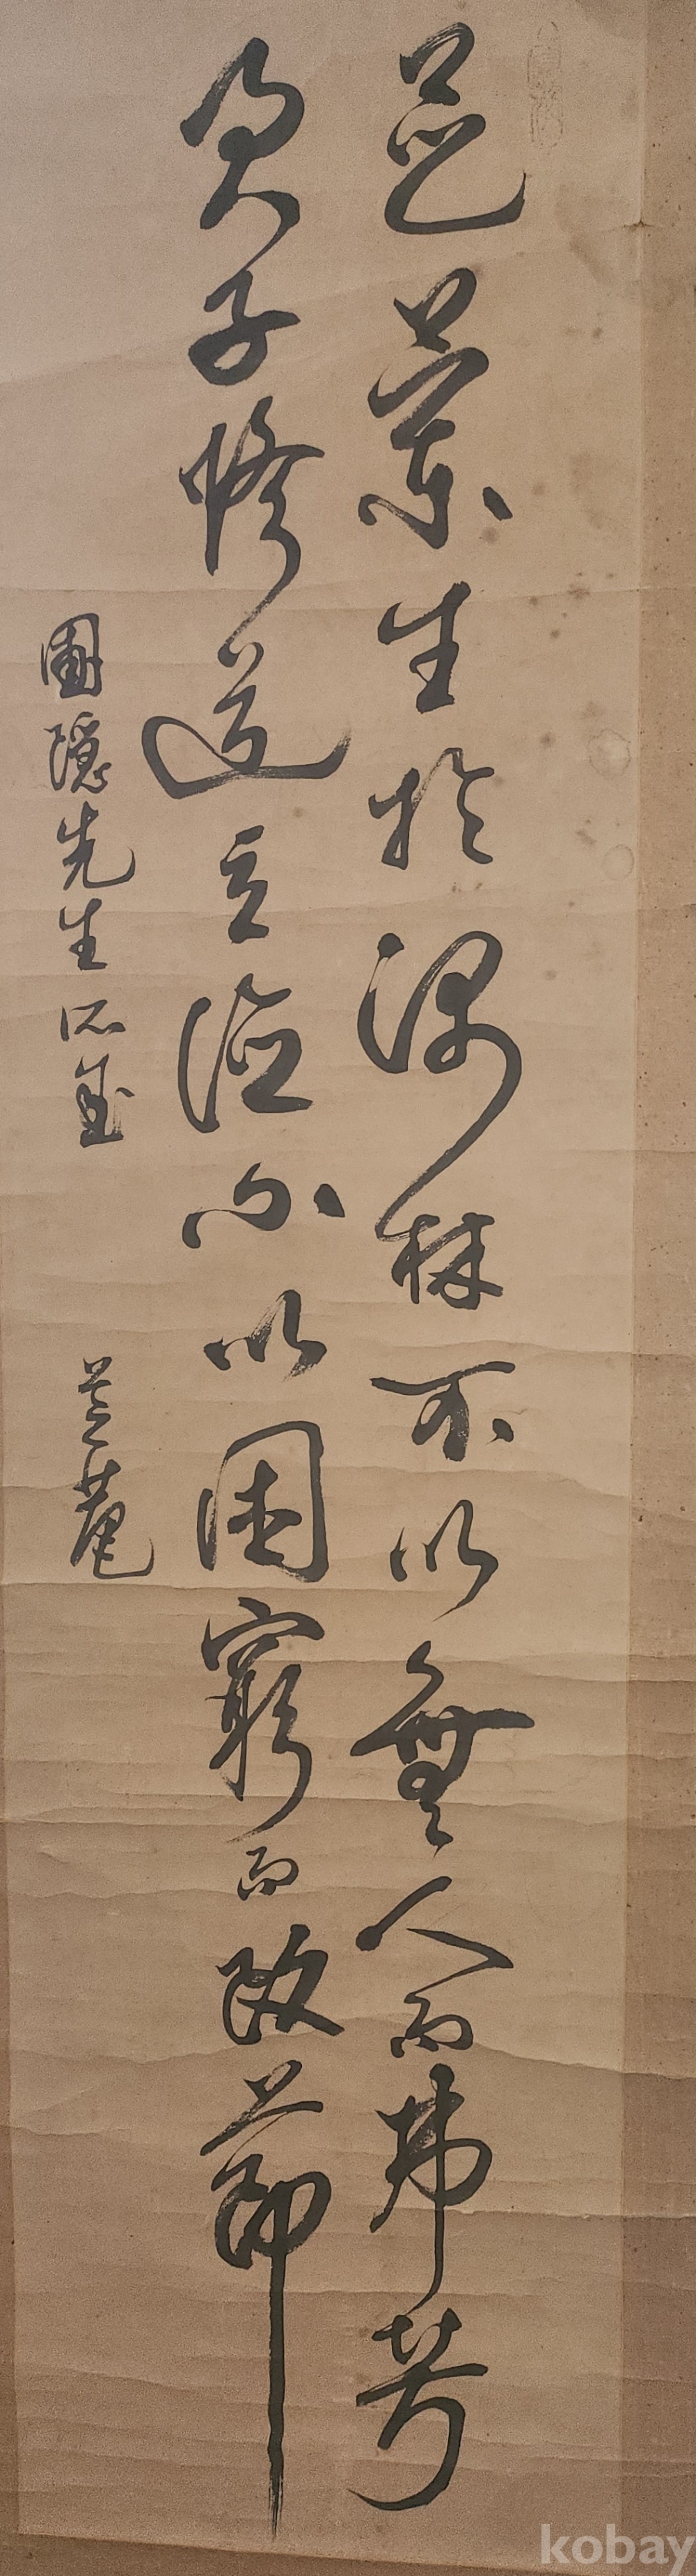 芝蘭生於深林不以無人而弗芳
君子修道立德不以困窮而改節
園隠先生
kobay